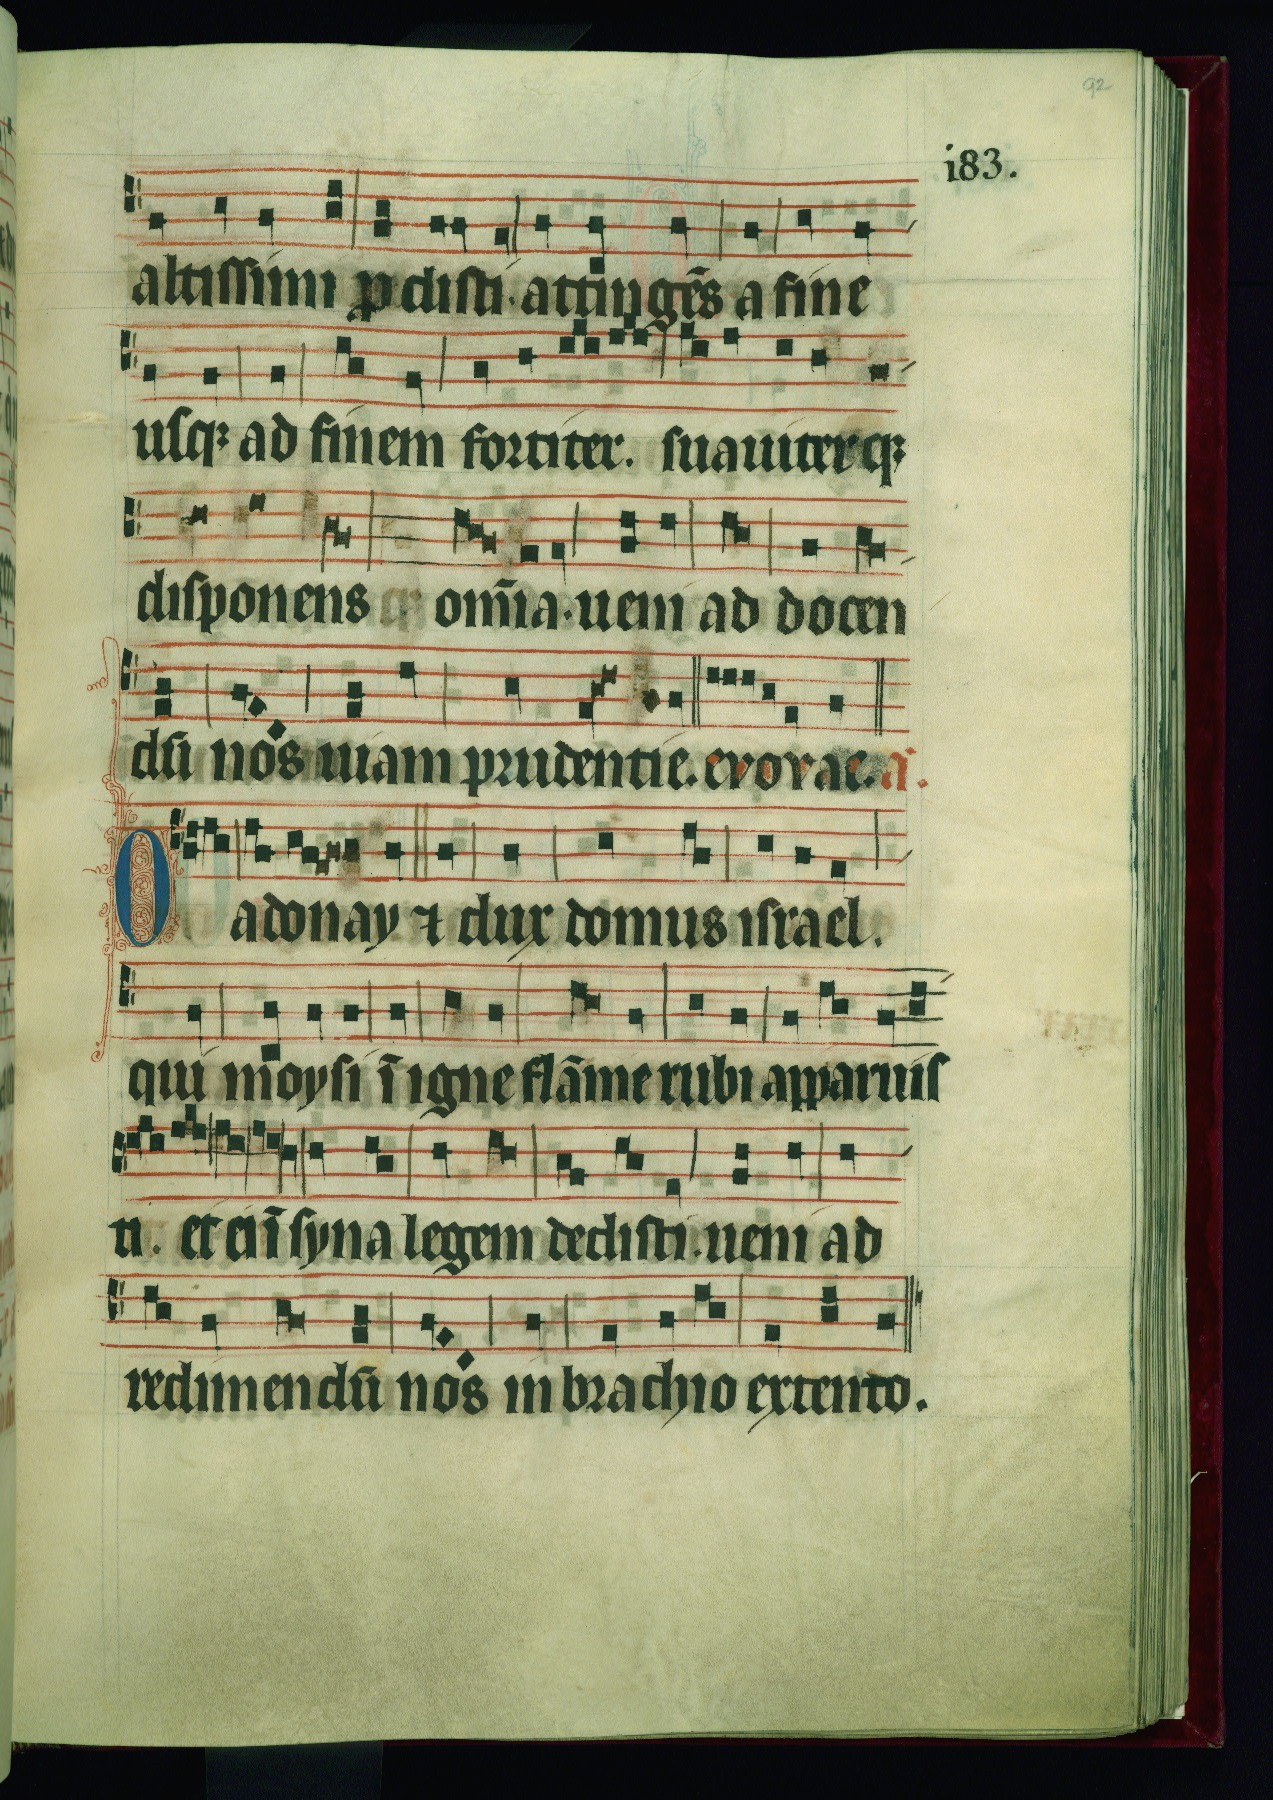 92
i83.
altissimi ꝓdisti. attingēs a fine
usqꝫ ad finem fortiter. suauiterqꝫ
disponens om̄ia. ueni ad docen
dū nos uiam prudentie. evovae. a.
O adonay ⁊ dux domus israel.
qui moysi ī igne flāme rubi apparuis
ti. et ei ī syna legem dedisti. ueni ad
redimendū nos in brachio extento.